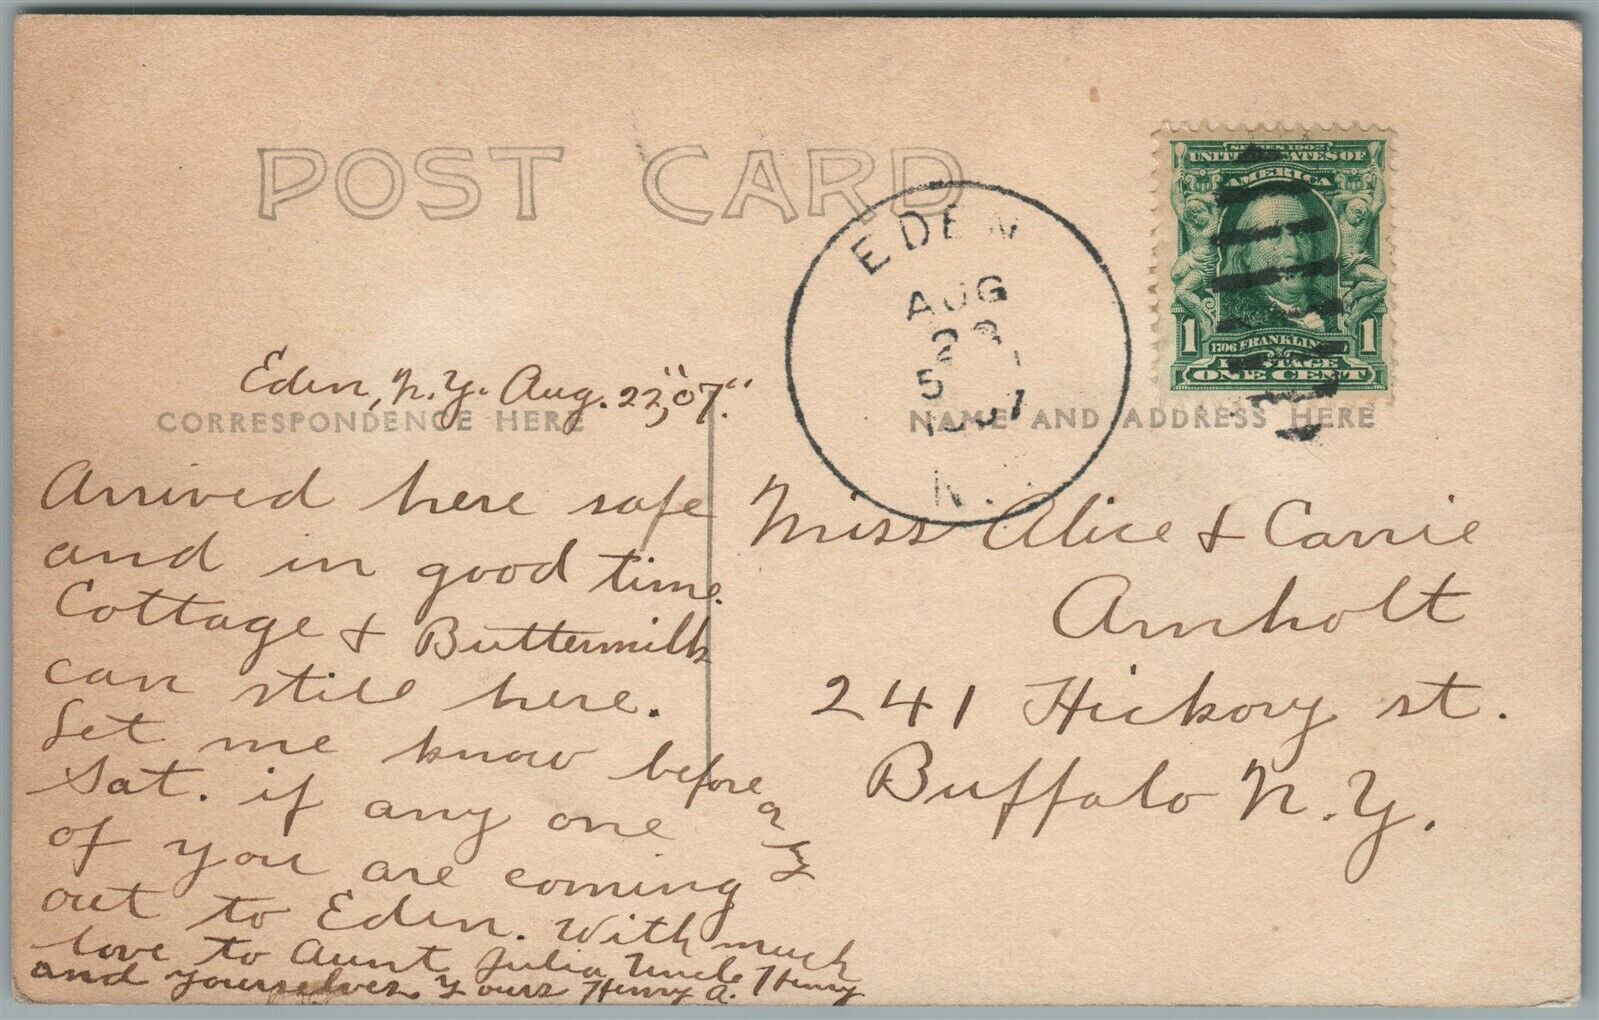 POST CARD
SERIES 1902
UNITED STATES OF
AMERICA
1 1
1706 FRANKLIN
POSTAGE
ONE CENT
EDEN
AUG
5
N.
Eden, N.Y. Aug. 22, "07."
CORRESPONDENCE HERE
Arrived here safe
and in good time.
Cottage & Buttermilk
can still here.
Let me know before
Sat. if any one
of you are coming
out to Eden. With much
love to Aunt Julia, Uncle Henry
and yourselves. Yours Henry A.
NAME AND ADDRESS HERE
Miss Alice & Carrie
Arnholt
241 Hickory st.
Buffalo N.Y.